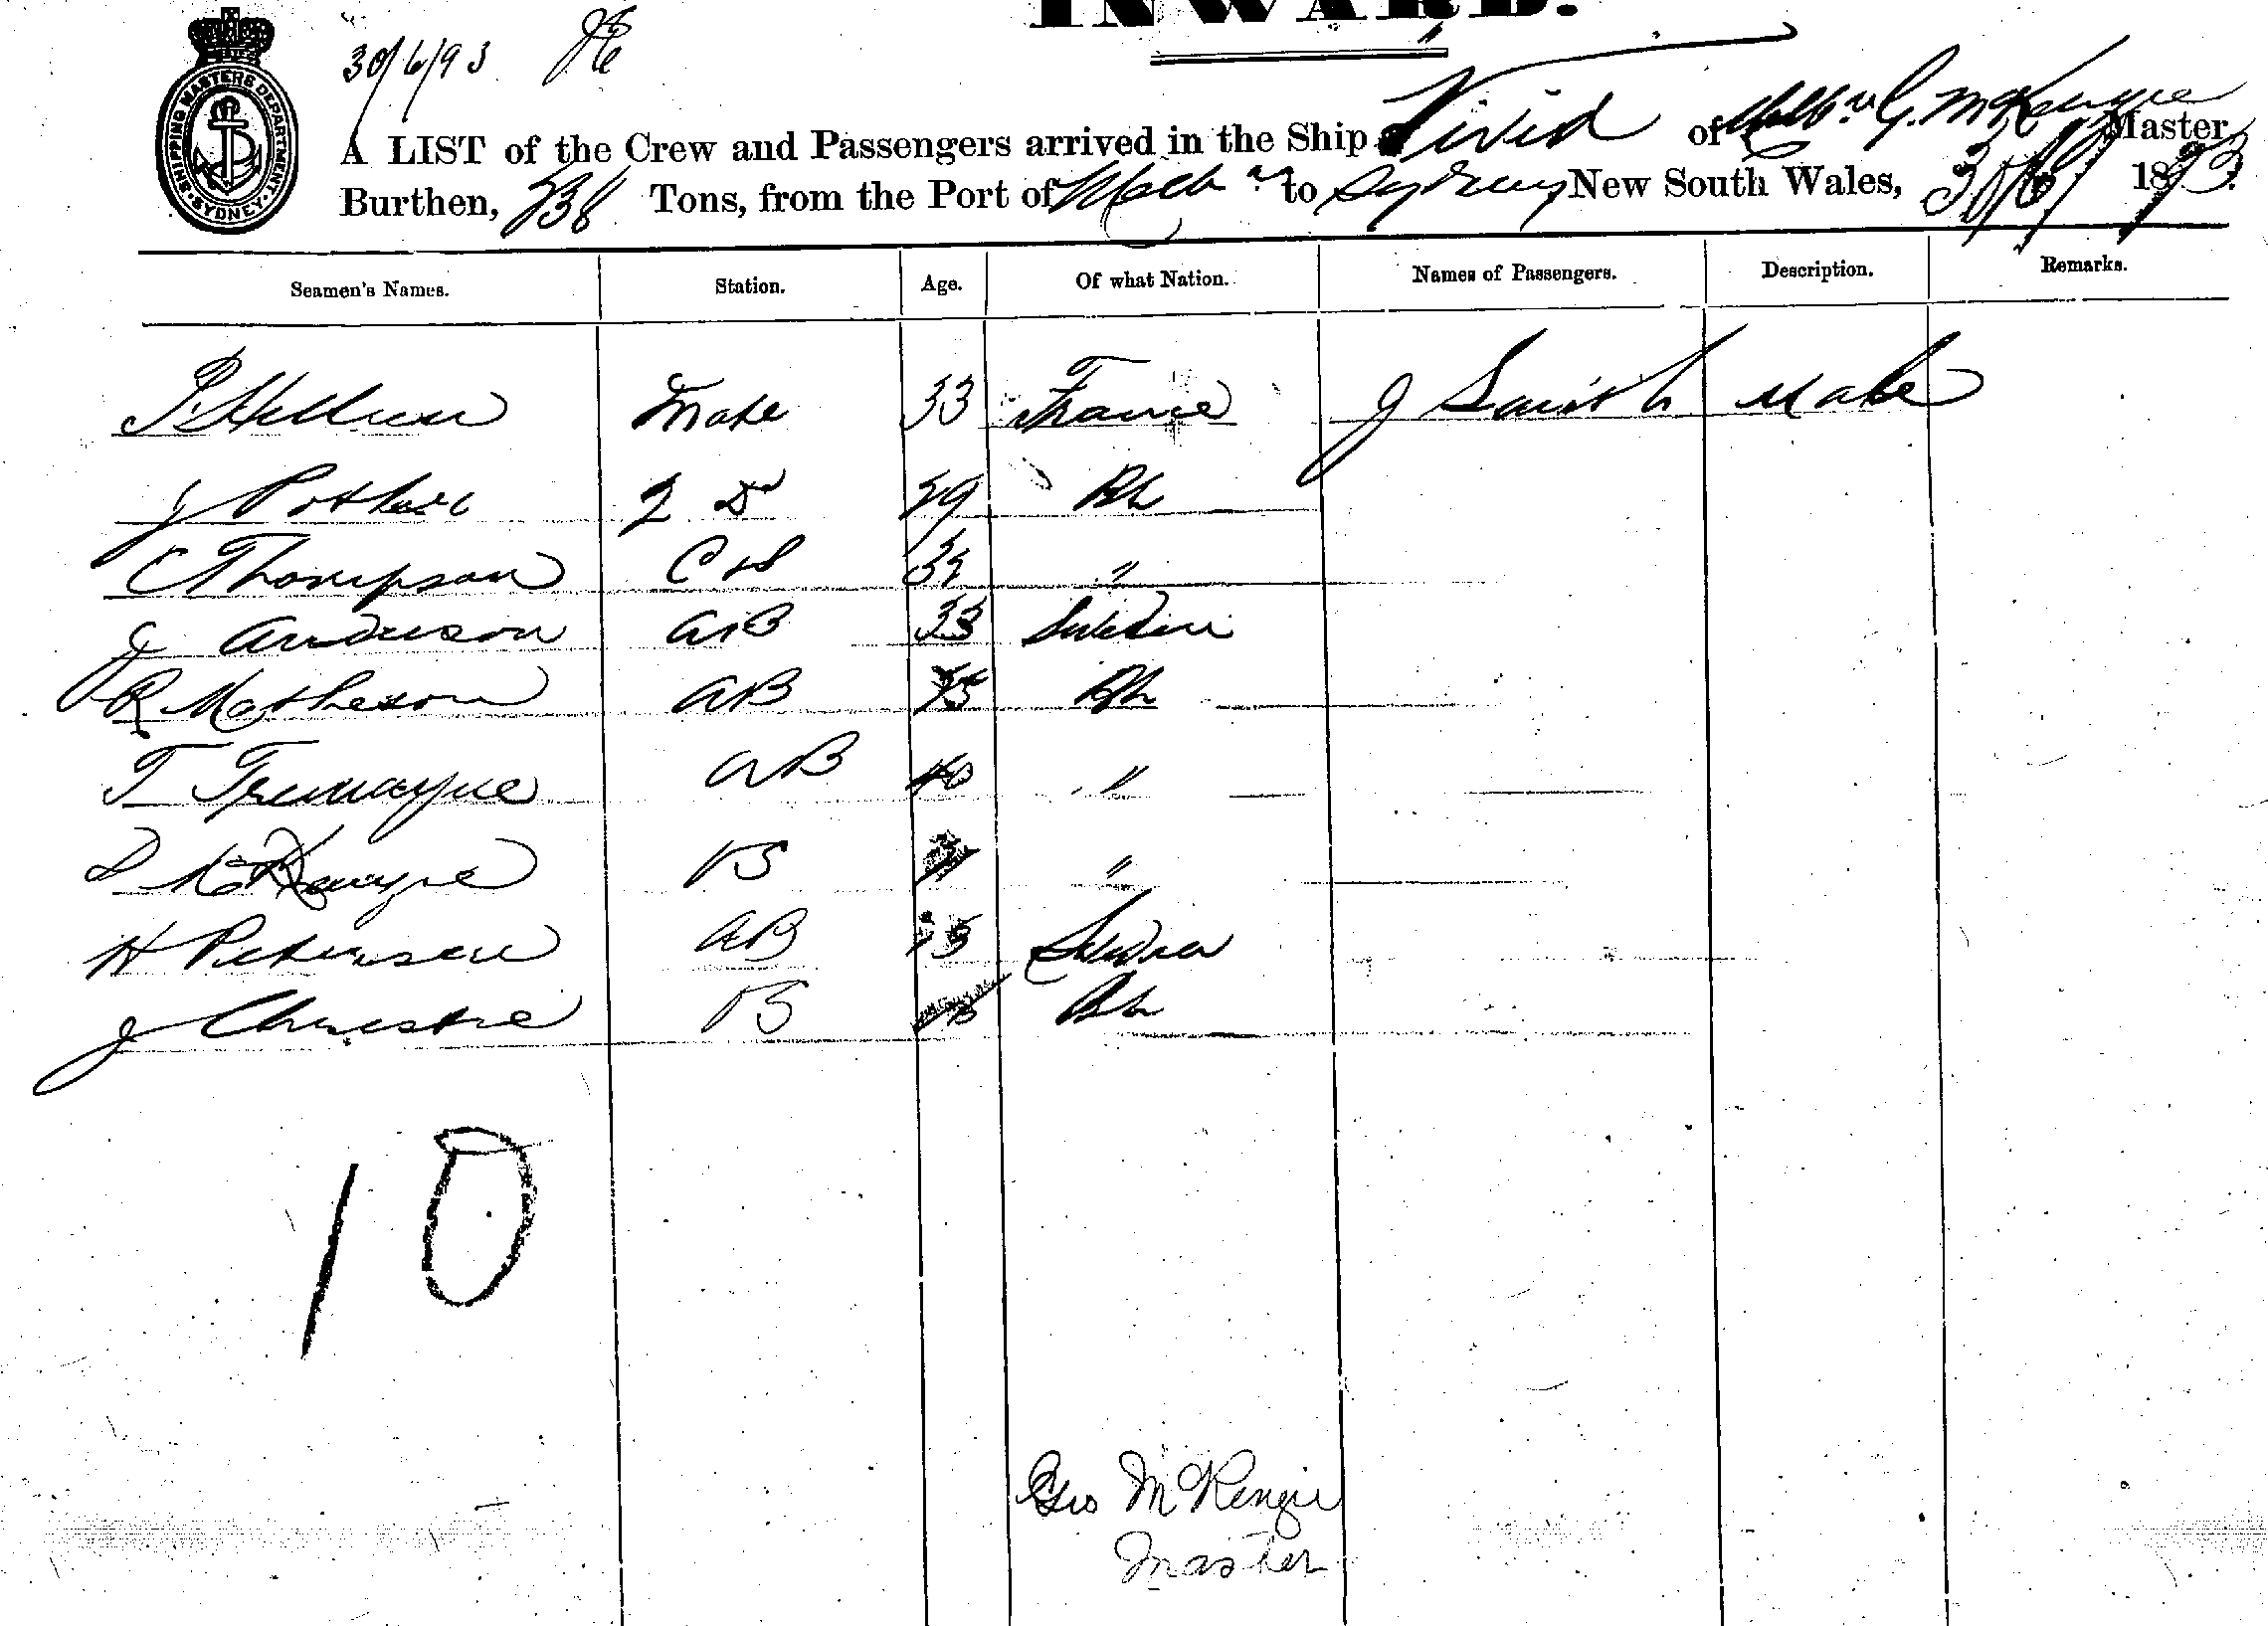 INWARD.
30/6/93
SHIPPING MASTERS DEPARTMENT SYDNEY
A LIST of the Crew and Passengers arrived in the Ship Vivid of Melbn G. McKenzie Master
Burthen, 238 Tons, from the Port of Melbn to Sydney New South Wales, 30/6/ 1893.
Seamen's Names. Station. Age. Of what Nation. Names of Passengers. Description. Remarks.
Mate 33 France J Smith Male
J 29 Bh
C Thompson C &S "
J Anderson AB 33 Sweden
R Matheson AB Bh
T Tremayne AB 40 "
D McKenzie OS "
H Petersen AB Sweden
J Christie OS Bh
10
Geo McKenzie
Master